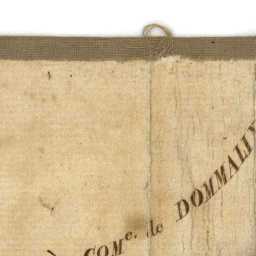 COMe. de DOMMALI